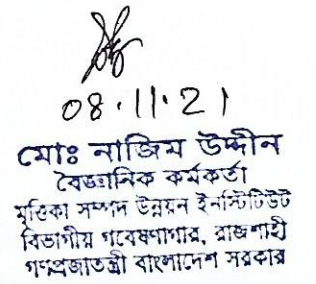 08.11.21
মোঃ নাজিম উদ্দীন
বৈজ্ঞানিক কর্মকর্তা
মৃত্তিকা সম্পদ উন্নয়ন ইনস্টিটিউট
বিভাগীয় গবেষণাগার, রাজশাহী
গণপ্রজাতন্ত্রী বাংলাদেশ সরকার